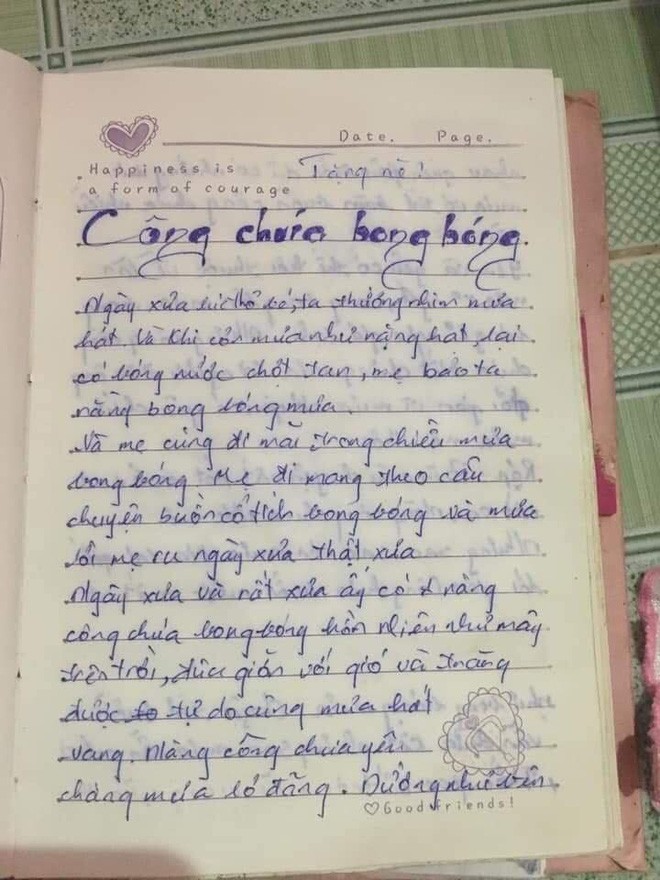 Date. Page.
Happiness is
a form of courage
Tặng nè!
Công chúa bong bóng.
Ngày xưa lúc thơ bé, ta thường nhìn mưa
hát. Và khi cơn mưa như nặng hạt, lại
có bóng nước chợt tan, mẹ bảo ta
rằng bong bóng mưa.
Và mẹ cũng đi mãi trong chiều mưa
bong bóng. Mẹ đi mang theo câu
chuyện buồn cổ tích bong bóng và mưa
lời mẹ ru ngày xưa thật xưa
Ngày xưa và rất xưa ấy có 1 nàng
công chúa bong bóng hồn nhiên như mây
trên trời, đùa giỡn với gió và trăng
được tự do cùng mưa hát
vang. Nàng công chúa yêu
chàng mưa lơ đãng. Dường như tên
Good friends!